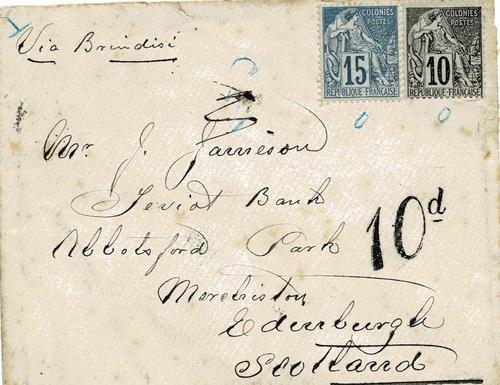 Via Brindisi
COLONIES
POSTES
15
REPUBLIQUE FRANÇAISE
COLONIES
POSTES
10
REPUBLIQUE FRANÇAISE
Mr. J. Jamieson
Teviot Bank
Abbotsford Park
10d
Merchiston
Edinburgh
Scotland